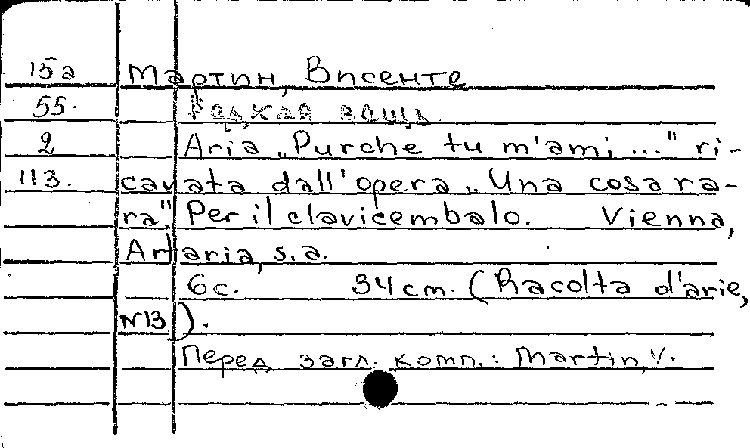 15а Мартин, Висенте
55. Редкая вещь.
2 Aria „Purche tu m'ami ..." ri-
113. cavata dall'opera „Una cosa ra-
ra" Per il clavicembalo. Vienna,
Artaria, s.a.
6 с. 34 cm. (Racolta d'arie,
N13).
Перед загл. комп.: Martin, V.